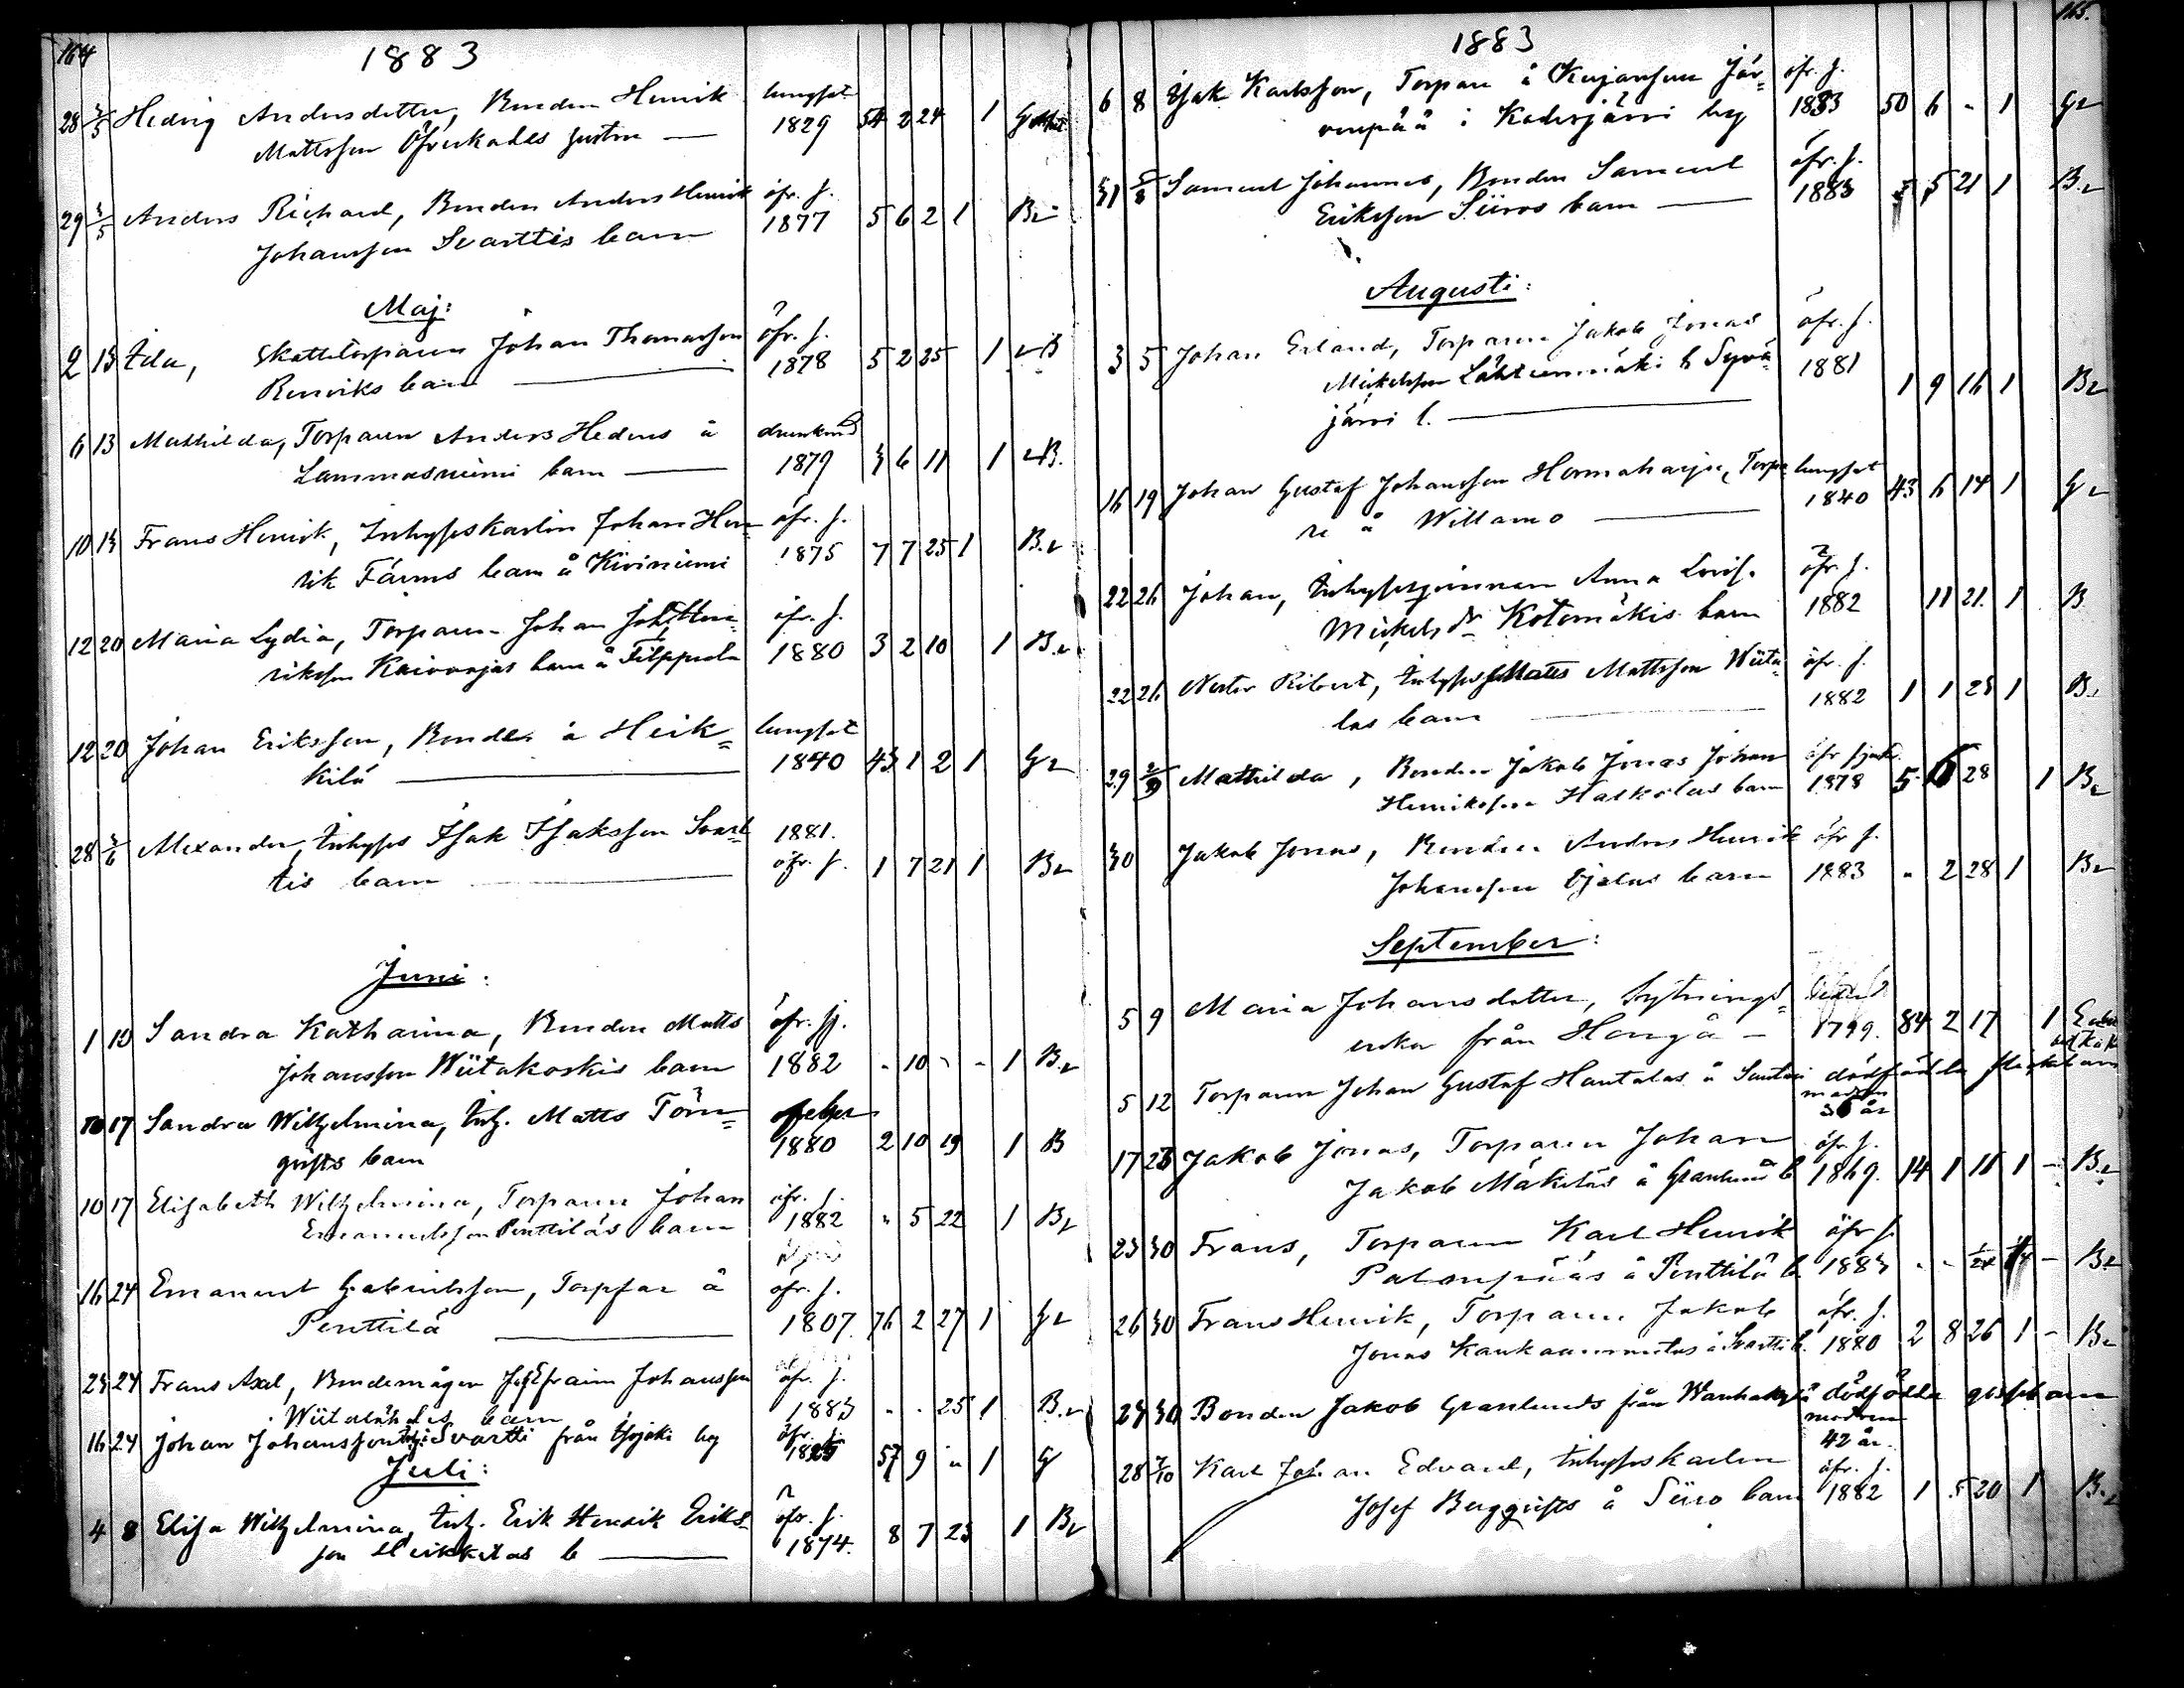 164
1883
28 3/5 Hedvig Andersdotter, Bonden Henrik lungsot
Mattsson Öfverkades hustru — 1829 54 2 24 1 G
29 3/5 Anders Richard, Bonden Anders Henrik öfr. s.
Johansson Svarttis barn 1877 5 6 2 1 Br
Maj:
2 13 Ida, Skattetorparen Johan Thomasson öfr. s.
Renviks barn — 1878 5 2 25 1 B
6 13 Mathilda, Torparen Anders Hedens å drunknad
Lammasniemi barn — 1879 3 6 11 1 B.
10 13 Frans Henrik, Inhyseskarlen Johan Hen- öfr. s.
rik Färms barn å Kiviniemi 1875 7 7 25 1 B.r
12 20 Maria Lydia, Torparen Johan Joh. Hen= öfr. s.
riksson Kaivoojas barn å Filppula 1880 3 2 10 1 B.r
12 20 Johan Eriksson, Bonde å Heik= lungsot
kilä — 1840 43 1 2 1 Gr
28 3/6 Alexander, Inhyses Isak Isaksson Svart= 1881.
tis barn — öfr. s. 1 7 21 1 Br
Juni:
1 10 Sandra Katharina, Bonden Matts öfr. sj.
Johansson Wiitakoskis barn 1882 - 10 - - 1 B.r
10 17 Sandra Wilhelmina, Inh. Matts Törn=
qvists barn 1880 2 10 19 1 B
10 17 Elisabeth Wilhelmina, Torparen Johan öfr. s.
Emanuelsson Penttiläs barn 1882 " 5 22 1 Br
16 24 Emanuel Gabrielsson, Torpfar å öfr. s.
Penttilä — 1807. 76 2 27 1 Gr
23 24 Frans Axel, Bondemågen Jos. Efraim Johansson öfr. s.
Wiitalähdes barn 1883 - - 25 1 B.r
16 24 Johan Johansson Inh. Svartti från Isojoki by öfr. s.
1825 57 9 " 1 G
Juli:
4 8 Elisa Wilhelmina, Inh. Erik Henrik Eriks- öfr. s.
son Heikkilas b — 1874. 8 7 23 1 Br
165.
1883
6 8 Isak Karlsson, Torpare å Kujanpää Jär= öfr. s.
venpää i Kodesjärvi by 1883 50 6 - 1 Gr
31 5/8 Samuel Johannes, Bonden Samuel öfr. s.
Eriksson Siiros barn — 1883 5 21 1 B.r
Augusti:
3 5 Johan Erland, Torparen Jakob Jonas öfr. s.
Mickelsson Lähteenmäki b Syvä= 1881
järvi b. — 1 9 16 1 Br
16 19 Johan Gustaf Johansson Hormaharju, Torpa- lungsot
re å Willamo — 1840 43 6 14 1 Gr
22 26 Johan, Inhysesqvinnan Anna Lovisa öfr. s.
Mickelsdr Kotomäkis barn 1882 11 21. 1 B
22 26 Nestor Ribert, Inhyses Matts Mattsson Wiita= öfr. s.
las barn — 1882 1 1 23 1 B.r
29 2/9 Mathilda, Bonden Jakob Jonas Johan öfr sjukd.
Henriksson Haskolas barn 1878 5 6 28 1 Br
30 Jakob Jonas, Bonden Anders Henrik öfr s.
Johansson Ojalas barn 1883 " 2 28 1 Br
September:
5 9 Maria Johansdotter, Sytnings=
enka från Hongå — 1799. 84 2 17 1
5 12 Torparen Johan Gustaf Hautalas å Santai dödfödda flickebarn
modren
36 år
17 23 Jakob Jonas, Torparen Johan öfr. s.
Jakob Mäkeläs å Granlund b 1869. 14 1 18 1 - B.r
23 30 Frans, Torparen Karl Henrik öfr s.
Palonpääs å Penttilä b 1883 - - 1/24 - Br
26 30 Frans Henrik, Torparen Jakob öfr. s.
Jonas Kankaanmutas å Svartti b. 1880 2 8 26 1 - Br
23 30 Bonden Jakob Granlunds från Wanhakylä dödfödda gossebarn
modren
42 år.
28 7/10 Karl Johan Edvard, Inhyseskarlen öfr. s.
Josef Bergqvists å Siiro barn 1882 1 5 20 1 B.r